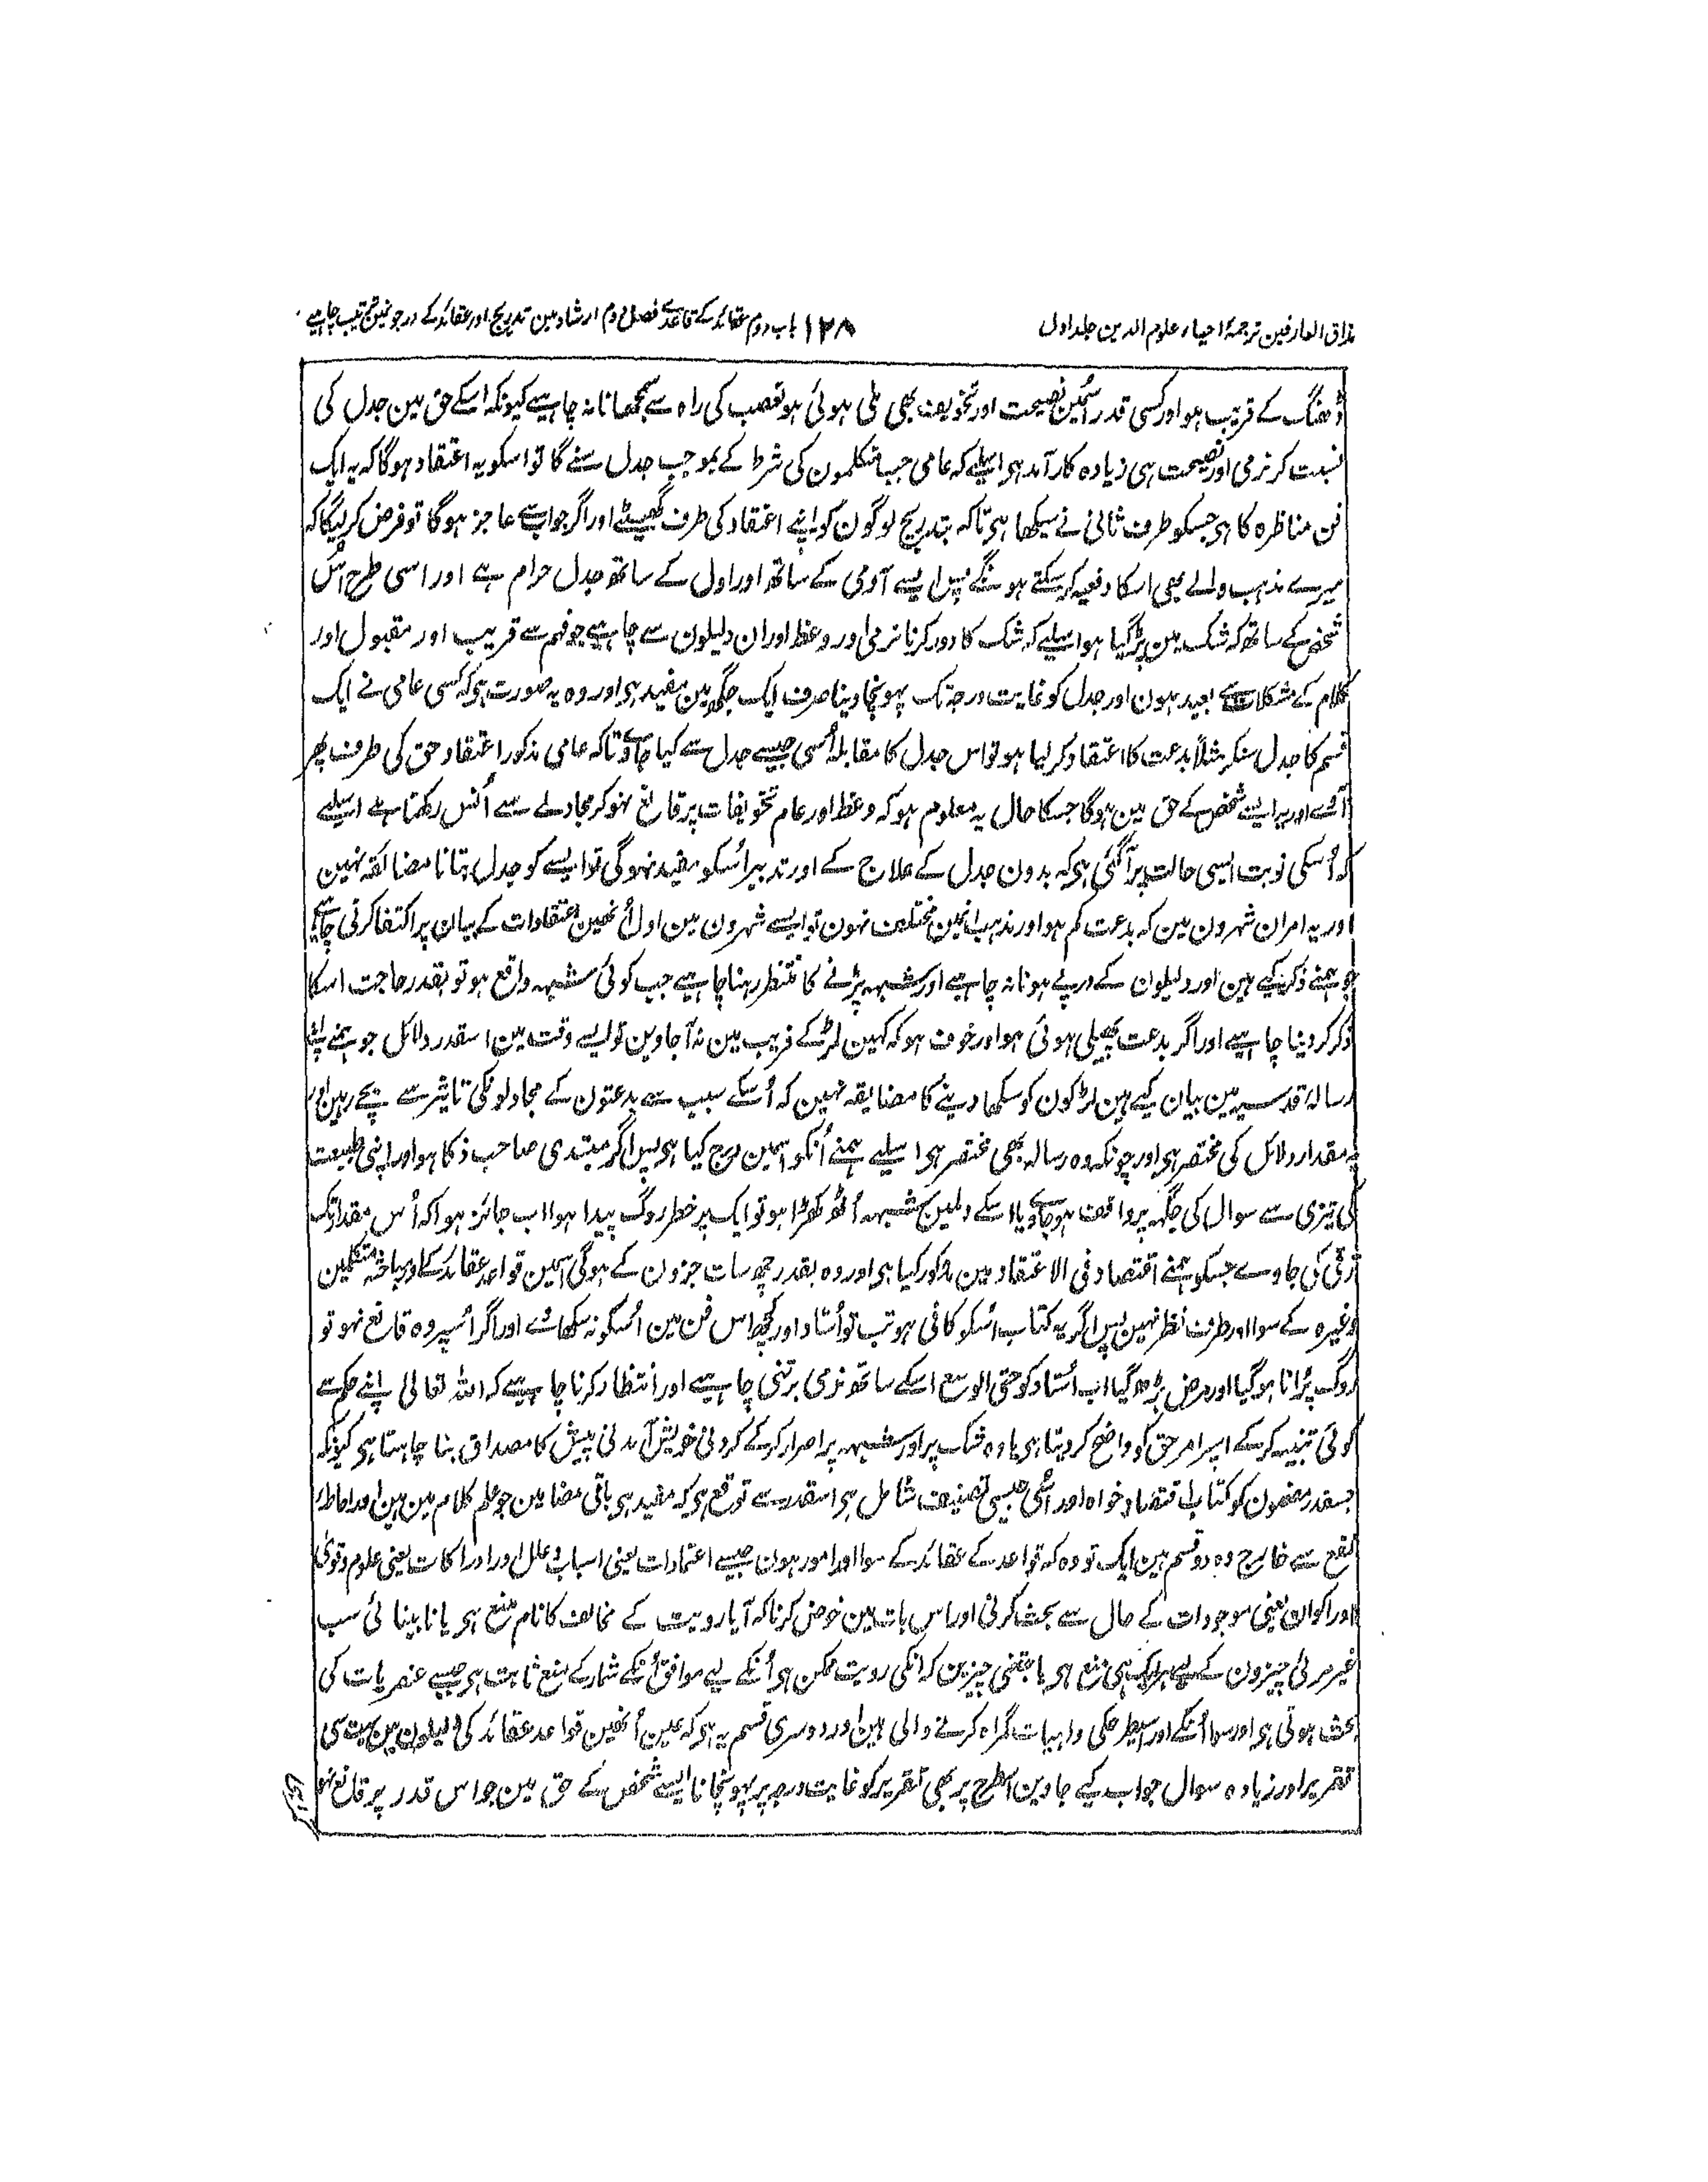 مذاق العارفین ترجمۂ احیاء علوم الدین جلد اول
۱۲۸
باب دوم عقائد کے قاعدے فصل دوم ارشاد مین تدریج اور عقائد کے درجونمین ترتیب چاہیے
ڈھنگ کے قریب ہو اور کسی قدر اسمین نصیحت اور تخویف بھی ملی ہوئی ہو تعصب کی راہ سے سمجھانا نہ چاہیے کیونکہ اسکے حق مین جدل کی
نسبت کر نرمی اور نصیحت ہی زیادہ کارآمد ہی اسلیے کہ عامی جب متکلمون کی شرط کے بموجب جدل سنے گا تو اسکو یہ اعتقاد ہوگا کہ یہ ایک
فن مناظرہ کا ہی جسکو طرف ثانی نے سیکھا ہی تاکہ بتدریج لوگون کو اپنے اعتقاد کی طرف گھسیٹے اور اگر جواب سے عاجز ہوگا تو فرض کر لیگا کہ
میرے مذہب والے بھی اسکا دفعیہ کر سکتے ہونگے پس ایسے آدمی کے ساتھ اور اول کے ساتھ جدل حرام ہے اور اسی طرح اُس
شخص کے ساتھ کہ شک مین پڑگیا ہو اسلیے کہ شک کا دور کرنا نرمی اور وعظ اور ان دلیلون سے چاہیے جو فہم سے قریب اور مقبول اور
کلام کے مشکلات سے بعید ہون اور جدل کو غایت درجہ تک پہونچا دینا صرف ایک جگہ مین مفید ہی اور وہ یہ صورت ہی کہ کسی عامی نے ایک
قسم کا جدل سنکر مثلاً بدعت کا اعتقاد کر لیا ہو تو اس جدل کا مقابلہ اُسی جیسے جدل سے کیا جاوے تاکہ عامی مذکور اعتقاد حق کی طرف پھر
آئے اور یہ ایسے شخص کے حق مین ہوگا جسکا حال یہ معلوم ہو کہ وعظ اور عام تخویفات پر قانع نہوکر مجادلے سے اُنس رکھتا ہے اسلیے
کہ اُسکی نوبت ایسی حالت پر آگئی ہی کہ بدون جدل کے علاج کے اور تدبیر اُسکو مفید نہوگی تو ایسے کو جدل بتانا مضائقہ نہین
اور یہ امر ان شہرون مین کہ بدعت کم ہو اور مذہب انمین مختلف نہون تو ایسے شہرون مین اول اُنھین اعتقادات کے بیان پر اکتفا کرنی چاہیے
جو ہمنے ذکر کیے ہین اور دلیلون کے درپے ہونا نہ چاہیے اور شبہہ پڑنے کا منتظر رہنا چاہیے جب کوئی شبہہ واقع ہو تو بقدر حاجت اسکا
ذکر کر دینا چاہیے اور اگر بدعت پھیلی ہوئی ہو اور خوف ہو کہ کہین لڑکے فریب مین نہ آجاوین تو ایسے وقت مین اسقدر دلائل جو ہمنے اپنے
رسالۂ قدسیہ مین بیان کیے ہین لڑکون کو سکھا دینے کا مضایقہ نہین کہ اُسکے سبب سے بدعتون کے مجادلونکی تاثیر سے بچے رہین اور
یہ مقدار دلائل کی مختصر ہی اور چونکہ وہ رسالہ بھی مختصر ہی اسلیے ہمنے اُنکو اسمین درج کیا ہی پس اگر مبتدی صاحب ذکا ہو اور اپنی طبیعت
کی تیزی سے سوال کی جگہہ پر واقف ہوجاوے یا اسکے دلمین شبہہ اُٹھ کھڑا ہو تو ایک پر خطر روگ پیدا ہوا اب جائز ہوا کہ اُس مقدار تک
ترقی کی جاوے جسکو ہمنے اقتصاد فی الاعتقاد مین مذکور کیا ہی اور وہ بقدر پچاس جزون کے ہوگی اسمین قواعد عقائد کے اور مباحثہ متکلمین
وغیرہ کے سوا اور طرف نظر نہین پس اگر یہ کتاب اُسکو کافی ہو تب تو اُستاد اور کچھ اس فن مین اُسکو نہ سکھاوے اور اگر اُسپر وہ قانع نہو تو
روگ پُرانا ہوگیا اور مرض بڑھ گیا اب اُستاد کو حتی الوسع اسکے ساتھ نرمی برتنی چاہیے اور انتظار کرنا چاہیے کہ اللہ تعالی اپنے حکم سے
کوئی تنبیہ کرکے اسپر امر حق کو واضح کر دیتا ہی یا وہ شک پر اور شبہہ پر اصرار کرکے کردنی خویش آمدنی پیش کا مصداق بنا چاہتا ہی کیونکہ
جسقدر مضمون کو کتاب اقتصاد خواہ اور اُسی جیسی تصنیف شامل ہی اسقدر سے توقع ہی کہ مفید ہی باقی مضامین جو علم کلام مین ہین اور احاطۂ
نفع سے خارج وہ دو قسم ہین ایک تو وہ کہ قواعد کے عقائد کے سوا اور امور ہون جیسے اعتمادات یعنی اسباب و علل اور ادراکات یعنی علوم و قوی
اور اکوان یعنی موجودات کے حال سے بحث کرنی اور اس بات مین خوض کرنا کہ آیا رویت کے مخالف کا نام منع ہی یا نابینائی سب
غیر مرئی چیزون کے لیے ایک ہی منع ہی یا جتنی چیزین کہ انکی رویت ممکن ہی اُنکے لیے موافق اُنکے شمار کے منع ثابت ہی جیسے عنصریات کی
بحث ہوتی ہی اور سوا اُنکے اور اسیطرحکی واہیات گمراہ کرنے والی ہین اور دوسری قسم یہ ہی کہ عین اُنھین قواعد عقائد کی دلیلون مین بہت سی
تقریر اور زیادہ سوال جواب کیے جاوین اسطرح پر بھی تقریر کو غایت درجہ پر پہونچانا ایسے شخص کے حق مین جو اس قدر پر قانع نہو